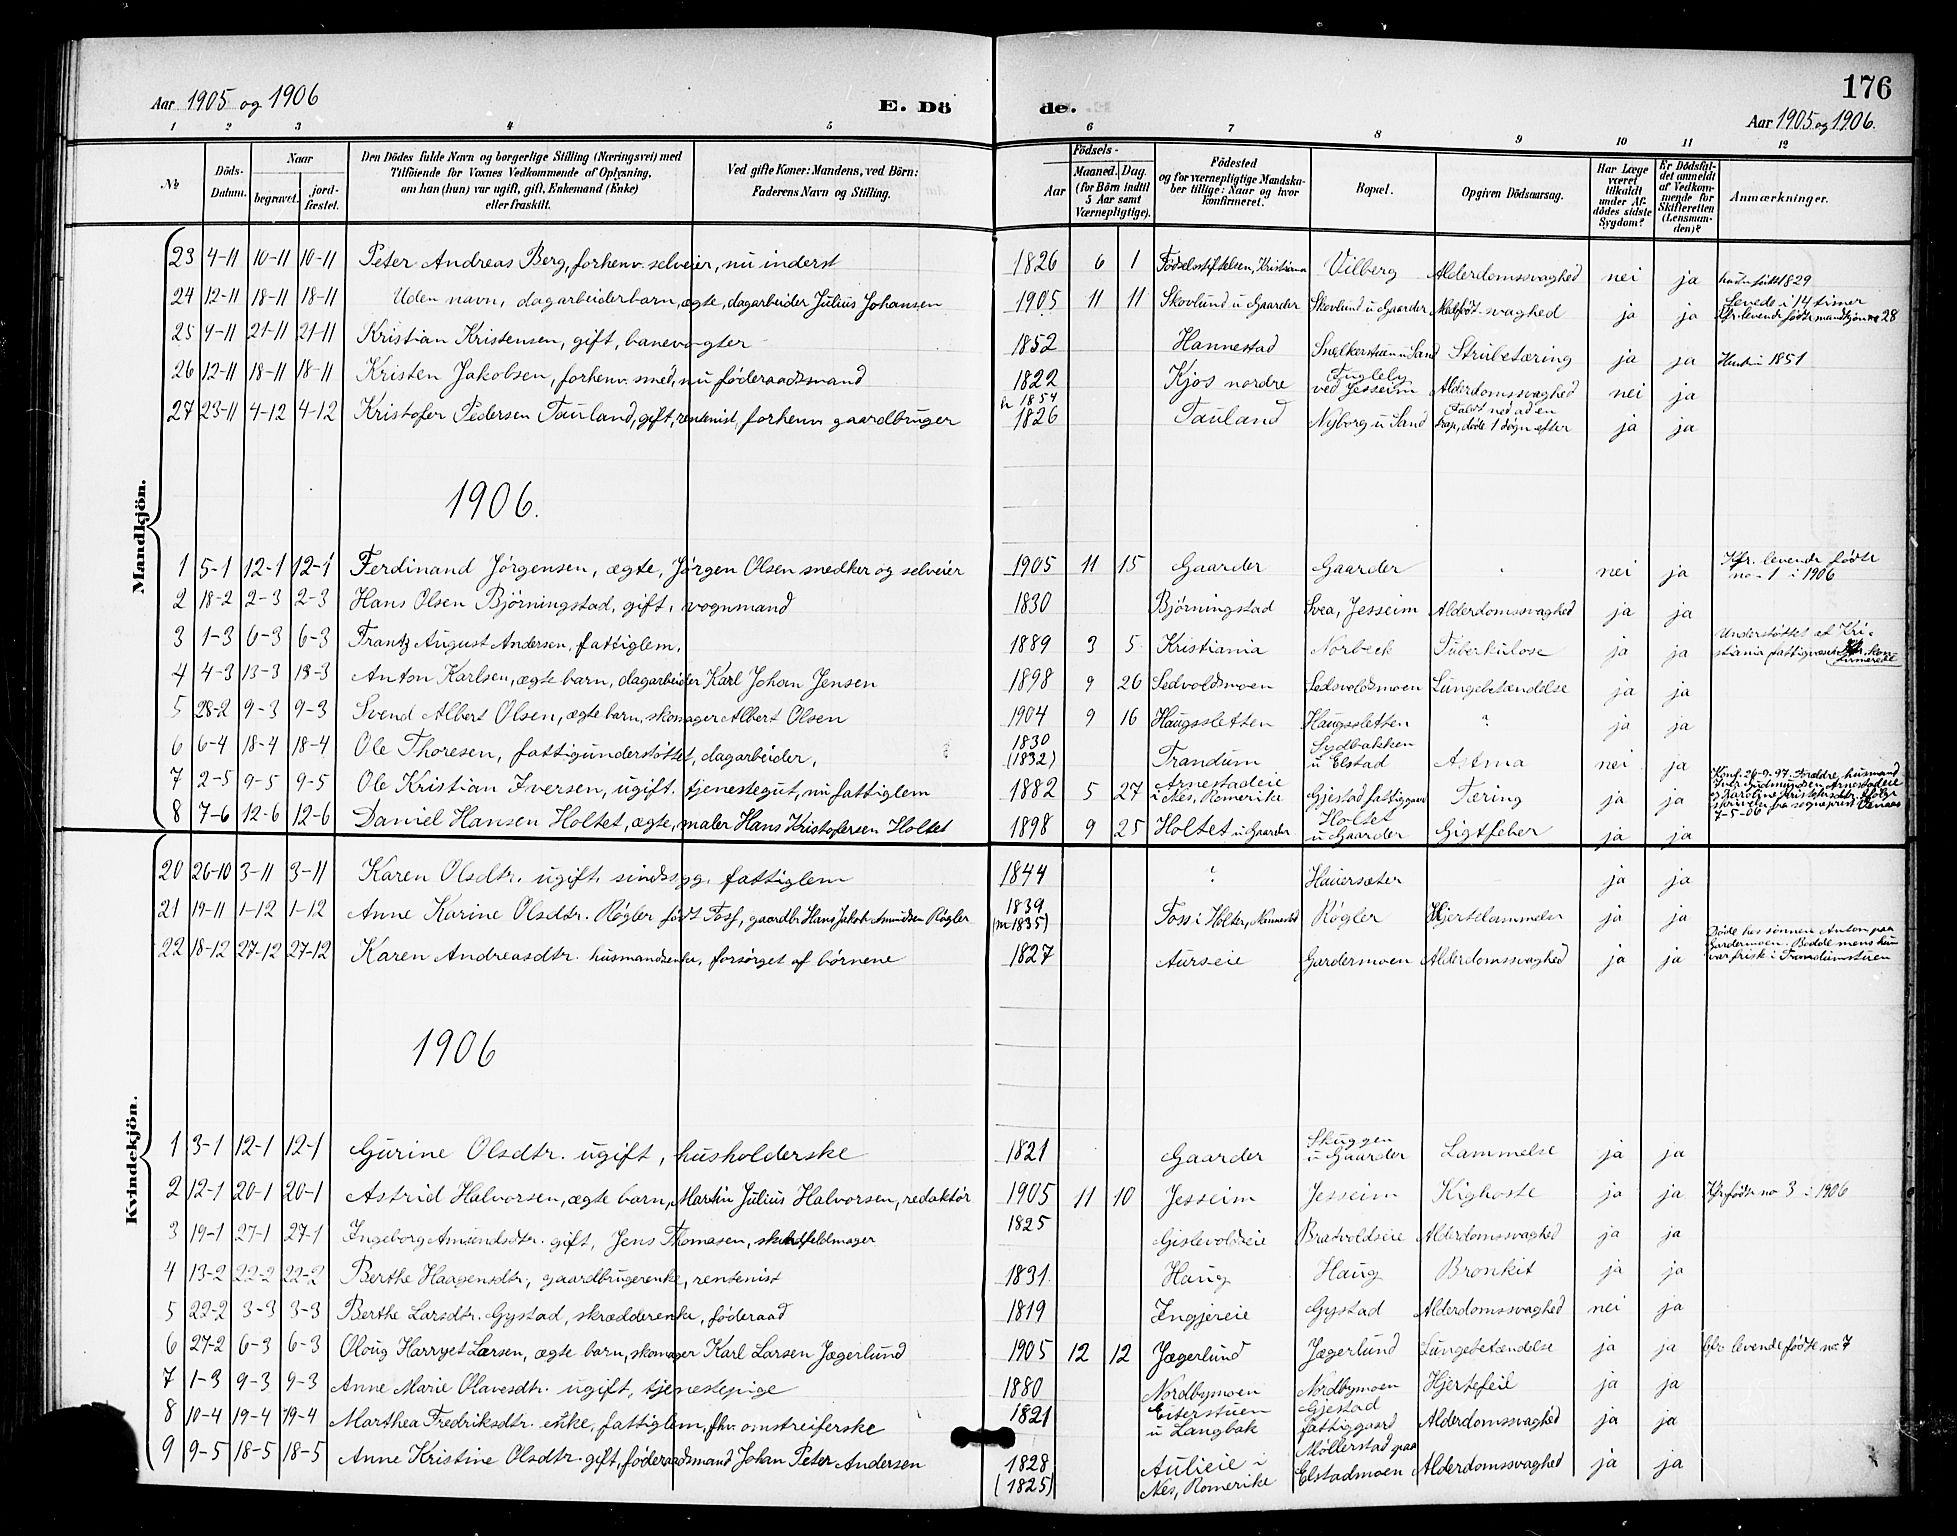 176
Aar 1905 og 1906
E. Dö de.
Aar 1905 og 1906.
1 2 3 4 5 6 7 8 9 10 11 12
No
Döds-Datum.
Naar begravet. jord-fæstet.
Den Dödes fulde Navn og borgerlige Stilling (Næringsvei) med Tilföiende for Voxnes Vedkommende af Oplysning, om han (hun) var ugift, gift, Enkemand (Enke) eller fraskilt.
Ved gifte Koner: Mandens, ved Börn: Faderens Navn og Stilling.
Födsels- Aar Maaned. Dag. (for Börn indtil 5 Aar samt Værnepligtige).
Födested og for værnepligtige Mandskaber tillige: Naar og hvor konfirmeret.
Bopæl.
Opgiven Dödsaarsag.
Har Læge været tilkaldt under Afdödes sidste Sygdom?
Er Dödsfaldet anmeldt af Vedkommende for Skifteretten (Lensmanden)?
Anmærkninger.
Mandkjön.
23 4-11 10-11 10-11 Peter Andreas Berg, forhenv. selveier, nu inderst 1826 6 1 Fødselsstiftelsen, Kristiania Vilberg Alderdomssvaghed nei ja 1829
24 12-11 18-11 18-11 Uden navn, dagarbeiderbarn, ægte, dagarbeider Julius Johansen 1905 11 11 Skovlund u Gaarder Skovlund u Gaarder svaghed ja ja Levede i 14 timer Kfr. levende fødte mandkjøn no 28
25 4-11 21-11 21-11 Kristian Kristensen, gift, banevogter 1852 Hannestad Snelkerstuen u Sand Strubetæring ja ja 1851
26 12-11 18-11 18-11 Kristen Jakobsen, forhenv. smed, nu føderaadsmand 1822 Kjos nordre Fugleby ved Jesseim Alderdomssvaghed nei ja
27 23-11 4-12 4-12 Kristofer Pedersen Tauland, gift, rentenist, forhenv. gaardbruger 1854 1826 Tauland Nyborg u Sand Faldt ned ad en trap, døde 1 døgn efter ja ja
1906.
1 5-1 12-1 12-1 Ferdinand Jørgensen, ægte, Jørgen Olsen snedker og selveier 1905 11 15 Gaarder Gaarder nei ja Kfr. levende fødte no 1 i 1906
2 18-2 2-3 2-3 Hans Olsen Bjørningstad, gift, vognmand 1830 Bjørningstad Svea, Jesseim Alderdomssvaghed ja ja
3 1-3 6-3 6-3 Frantz August Andersen, fattiglem. 1889 3 5 Kristiania Norbeck Tuberkulose ja ja Understøttet af Kristiania fattigvæsen Kfr. konfirmerede
4 4-3 13-3 13-3 Anton Karlsen, ægte barn, dagarbeider Karl Johan Jensen 1898 9 26 Sedvoldsmoen Sedsvoldsmoen Lungebetændelse ja ja
5 28-2 9-3 9-3 Svend Albert Olsen, ægte barn, skomager Albert Olsen 1904 9 16 Haugssletten Haugssletten " ja ja
6 6-4 18-4 18-4 Ole Thoresen, fattigunderstøttet, dagarbeider, 1830 (1832) Trandum Sydbakken u Elstad Astma nei ja
7 2-5 9-5 9-5 Ole Kristian Iversen, ugift, tjenestegut, nu fattiglem 1882 5 27 Arnestadeie i Nes, Romerike Gjestad fattiggaard Tæring ja ja Konf. 26-9-97. Forældre, husmand Iver Gudmundsen Arnestadeie og Karoline Kristofersdtr. ifølge skrivelse fra sogneprest 7-5-06
8 7-6 12-6 12-6 Daniel Hansen Holtet, ægte, maler Hans Kristofersen Holtet 1898 9 25 Holtet u Gaarder Holtet u Gaarder Gigtfeber ja ja
Kvindekjön.
20 26-10 3-11 3-11 Karen Olsdtr. ugift. sindssyg. fattiglem 1844 ? Hauersæter ja ja
21 19-11 1-12 1-12 Anne Karine Olsdtr. Røgler født Foss, gaardbr. Hans Jakob Amundsen Røgler 1839 (1835) Foss i Holter, Nannestad Røgler Hjertelammelse ja ja
22 18-12 27-12 27-12 Karen Andreasdtr. husmandsenke, forsørget af børnene 1827 Aurseie Gardermoen Alderdomssvaghed ja ja Døde hos sønnen Anton paa Gardermoen. Bodde mens hun var frisk i Trandumstuen
1906
1 3-1 12-1 12-1 Gurine Olsdtr. ugift, husholderske 1821 Gaarder Skuggen u Gaarder Lammelse ja ja
2 12-1 20-1 20-1 Astrid Halvorsen, ægte barn, Martin Julius Halvorsen, redaktør 1905 11 10 Jesseim Jesseim Kighoste ja ja Kfr. fødte no 3 i 1906
3 19-1 27-1 27-1 Ingeborg Amundsdtr. gift, Jens Thomasen, skindfeldmager 1825 Gislevoldseie Bratvoldseie Alderdomssvaghed ja ja
4 13-2 22-2 22-2 Berthe Haagensdtr, gaardbrugerenke, rentenist 1831 Haug Haug Bronkit ja ja
5 22-2 3-3 3-3 Berthe Larsdtr. Gystad, skrædderenke, føderaad 1819 Ingjereie Gystad Alderdomssvaghed nei ja
6 27-2 6-3 6-3 Oloug Harryet Larsen, ægte barn, skomager Karl Larsen Jægerlund 1905 12 12 Jægerlund Jægerlund Lungebetændelse ja ja Cfr. levende fødte no. 7
7 1-3 9-3 9-3 Anne Marie Olavesdtr. ugift, tjenestepige 1880 Nordbymoen Nordbymoen Hjertefeil ja ja
8 10-4 19-4 19-4 Marthea Fredriksdtr. enke, fattiglem, fhv. omstreiferske 1821 Eiterstuen u Langbak Gjestad fattiggaard Alderdomssvaghed ja ja
9 9-5 18-5 18-5 Anne Kristine Olsdtr. gift, føderaadsmand Johan Peter Andersen 1828 (1825) Aulieie i Nes, Romerike Møllerstad paa Elstadmoen Alderdomssvaghed ja ja